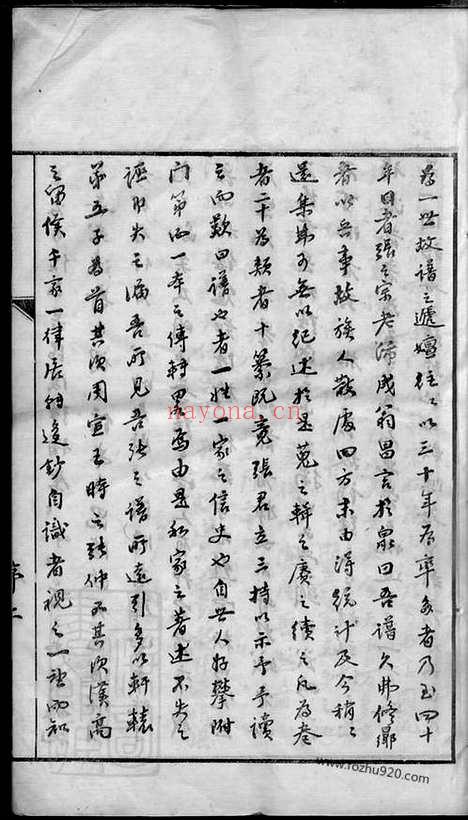 為一世故譜之遞嬗往之以三十年為率多者乃至四十
年日者張之宗老沛成翁昌言於眾曰吾譜久弗修鄉
者以兵事故族人散處四方未由得統計及今稍之
還集弗可無以紀述於是蒐之輯之賡之續之凡為卷
者二十為類者十纂既竟張君立三持以示予予讀
之而歎曰譜也者一姓一家之信史也自世人好攀附
門第而一本之傳轉
焉由是私家之著述不失之
誣即失之漏吾所見吾張之譜所遠引多以軒轅
第五子為首其次周宣王時之張仲又其次漢高
之留侯千家一律展轉迻鈔自識者視之一望而知
序 二
nayona.cn
www.fozhu920.com